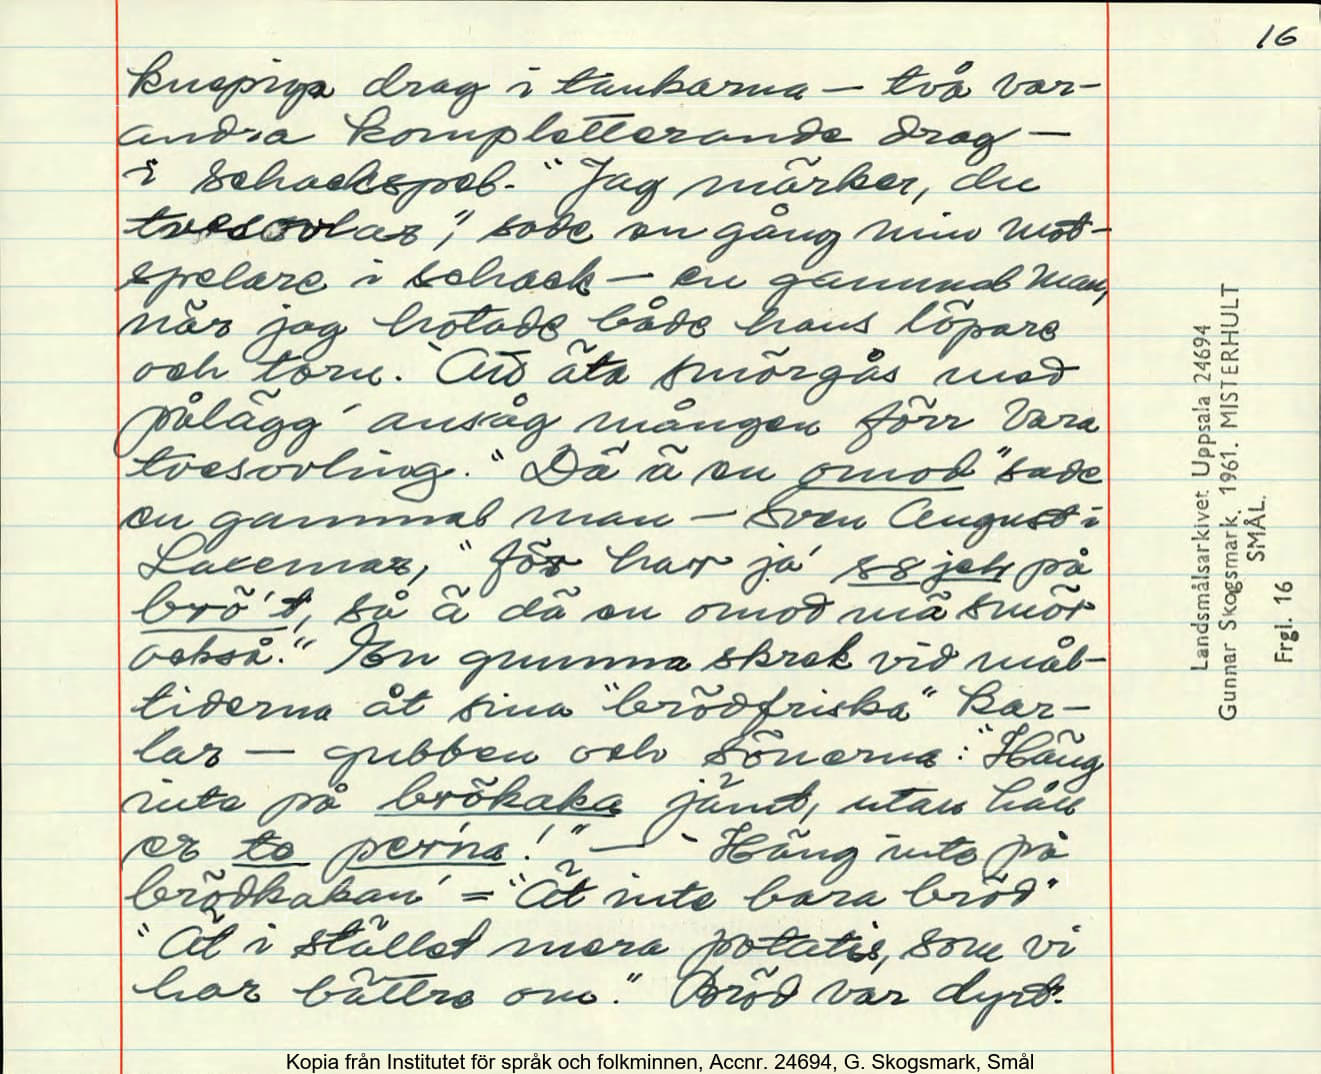 16
knepiga drag i tankarna — två var-
andra kompletterande drag —
i schackspel. "Jag märker, du
tvesovlar", sade en gång min mot-
spelare i schack — en gammal man,
när jag hotade både hans löpare
och torn. 'Att äta smörgås med
pålägg' ansåg mången förr vara
tvesovling. "Dä ä en omod" sade
en gammal man — Sven August i
Laxemar, "för har ja' på
brö't, så ä dä en omod mä smör
också." En gumma skrek vid mål-
tiderna åt sina "brödfriska" kar-
lar — gubben och sönerna: "Häng
inte på brökaka jämt, utan håll
er te perna!" — 'Häng inte på
brödkakan' = "Ät inte bara bröd"
"Ät i stället mera potatis, som vi
har bättre om." Bröd var dyrt.
Landsmålsarkivet Uppsala 24694
Gunnar Skogsmark. 1961. MISTERHULT
SMÅL.
Frgl. 16
Kopia från Institutet för språk och folkminnen, Accnr. 24694, G. Skogsmark, Smål